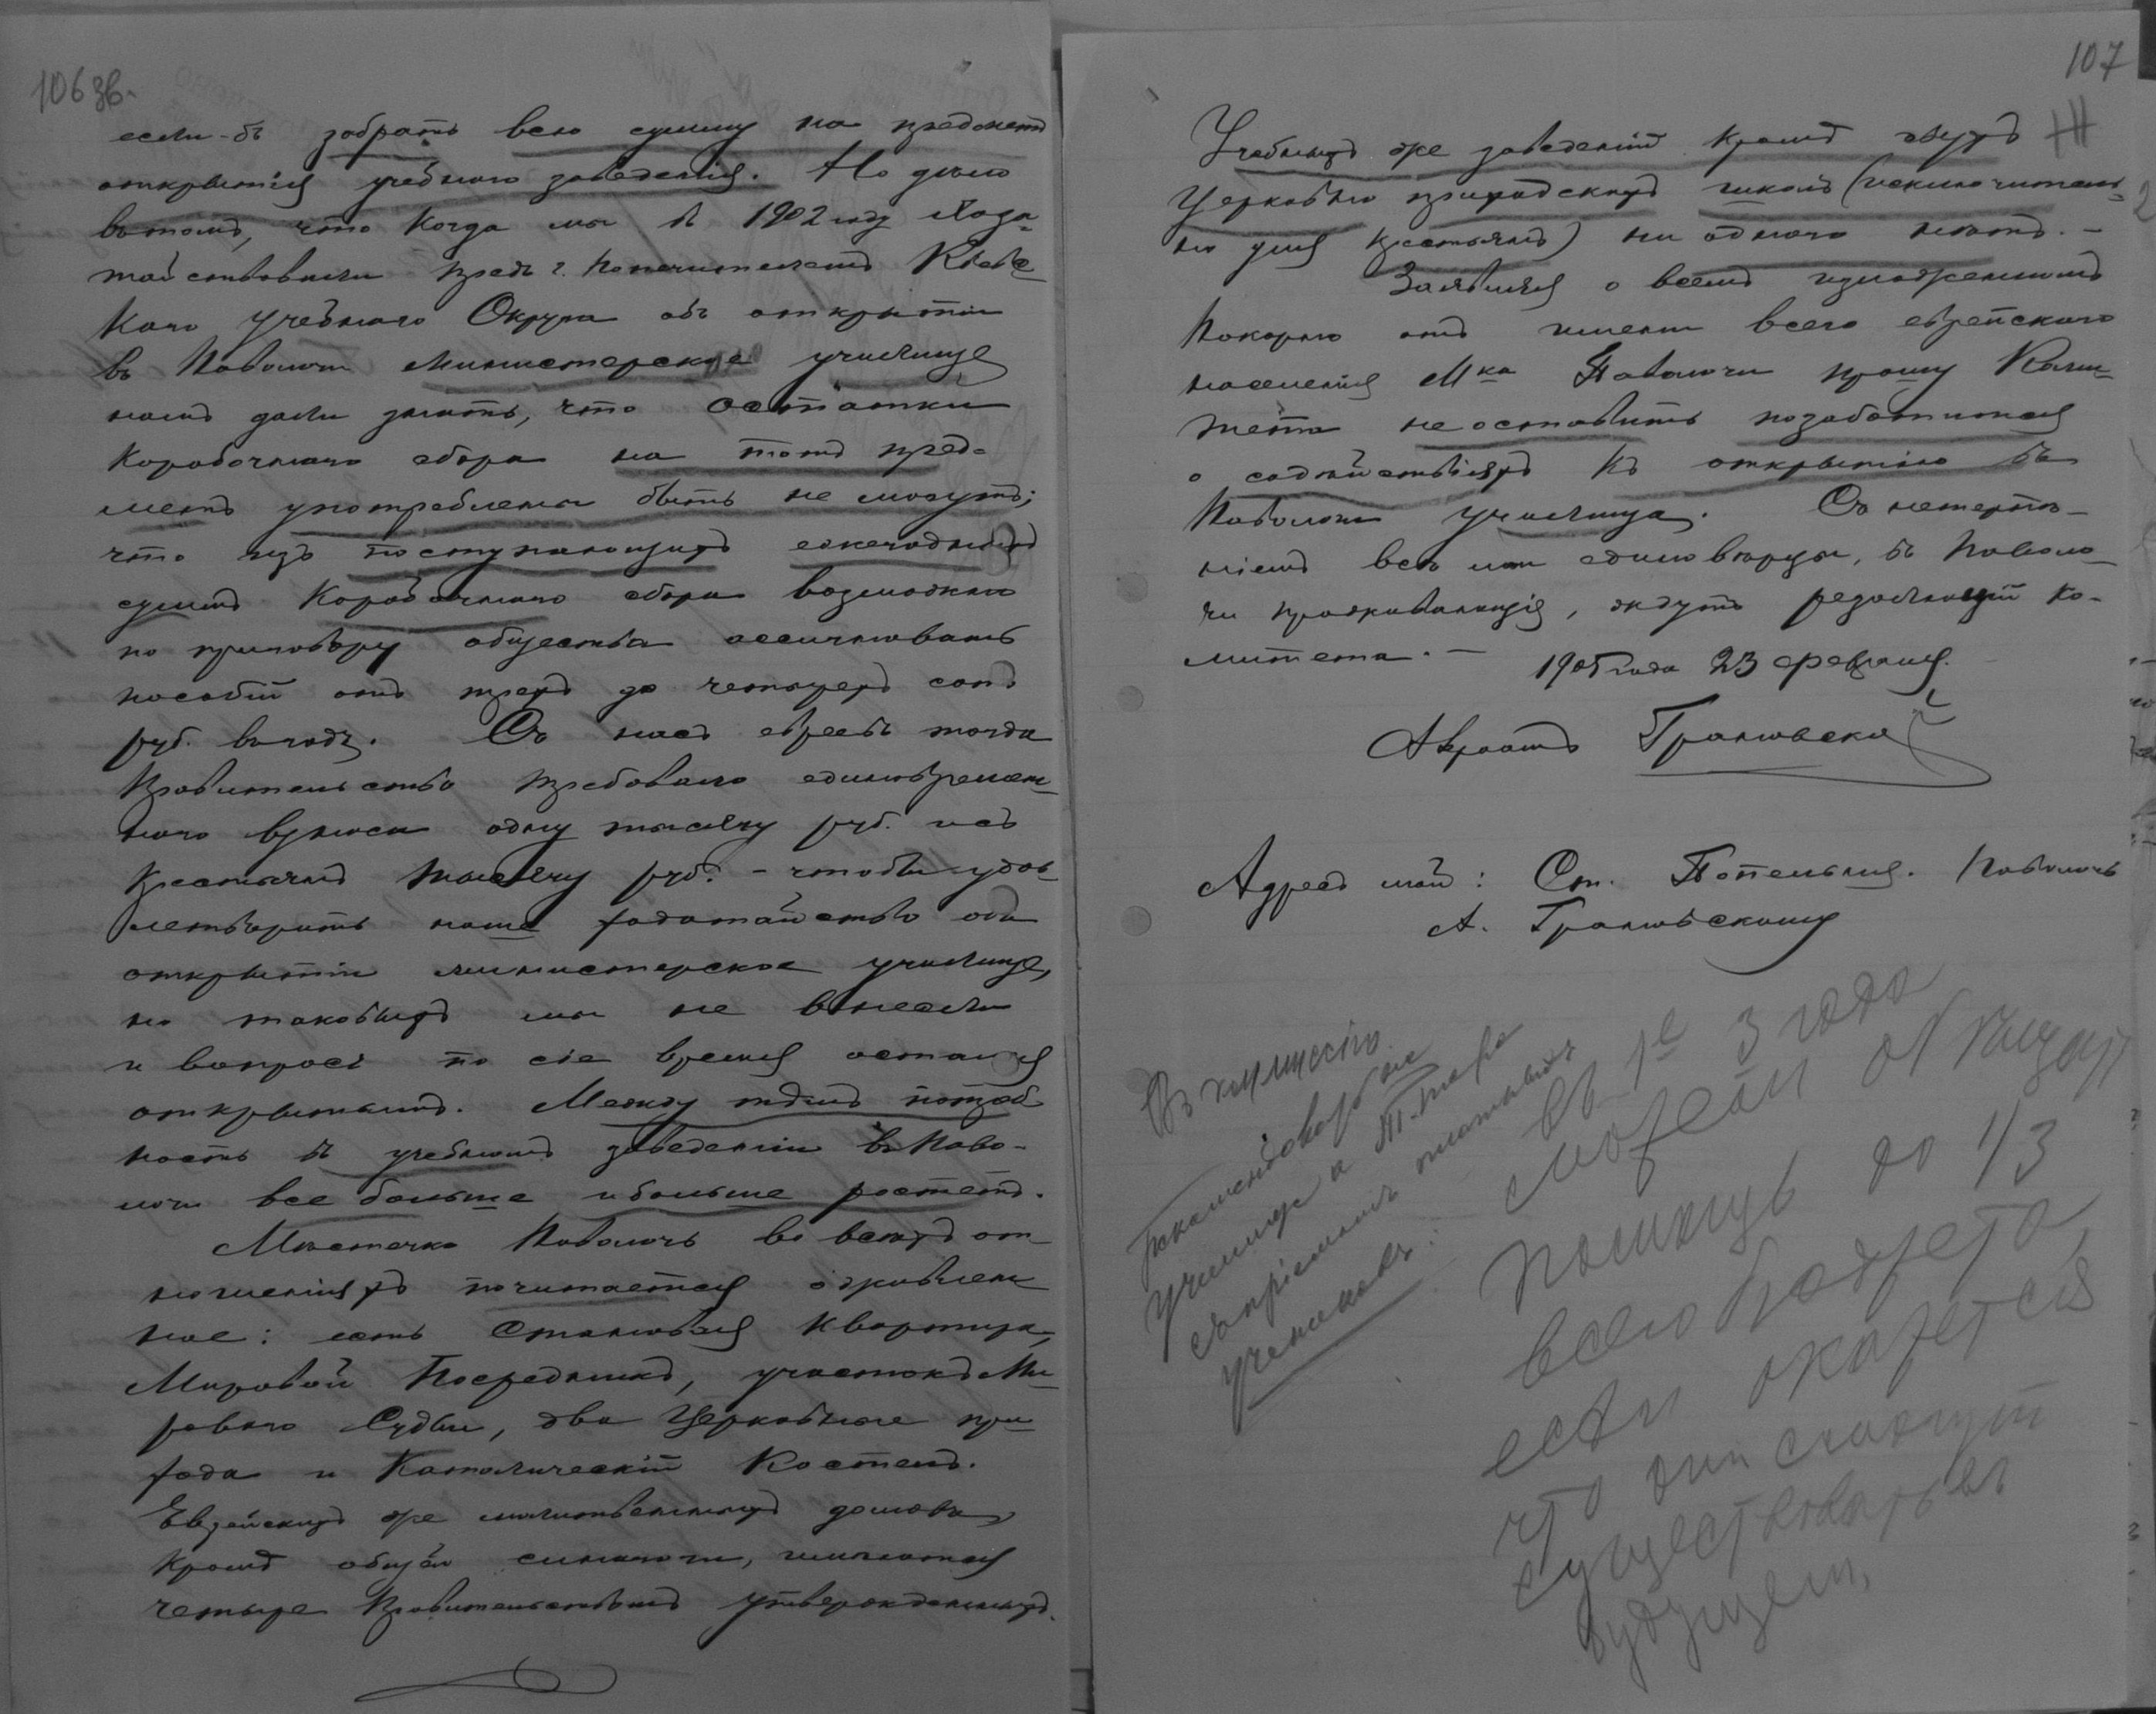 106 зв.
если-бъ забрать всю сумму на предметъ
открытія учебнаго заведенія. Но дѣло
въ томъ, что когда мы въ 1902 году хода-
тайствовали предъ г. Попечителемъ Кіевс-
каго Учебнаго Округа объ открытіи
въ Паволочи министерское училище
намъ дали знать, что остатки
Коробочнаго сбора на тотъ пред-
метъ употреблены быть не могутъ;
что изъ поступающихъ ежегодныхъ
суммъ Коробочнаго сбора возможно
по приговору общества ассигновать
пособій отъ трехъ до четырехъ сотъ
руб. въ годъ. Съ насъ евреевъ тогда
Правительство требовало единовремен-
наго взноса одну тысячу руб. и съ
Крестьянъ тысячу руб. - чтобы удов-
летворить наше ходатайство объ
открытіи министерское училище,
но таковыхъ мы не внесли
и вопросъ по сіе время остался
открытымъ. Между тѣмъ потреб-
ность въ учебномъ заведеніи въ Паво-
лочи все больше и больше ростетъ.
Мѣстечко Паволочь во всѣхъ от-
ношеніяхъ почитается оживлен-
ное: есть Становая Квартира,
Мировой Посредникъ, участокъ Ми-
роваго Судьи, два Церковные при-
хода и Католическій Костелъ.
Еврейскихъ же молитвенныхъ домовъ,
кромѣ общей синагоги, имѣются
четыре Правительствомъ утвержденныхъ.
107
Учебныхъ же заведеній кромѣ двухъ
Церковно приходскихъ школъ (исключитель-
но для Крестьянъ) ни одного нѣтъ. -
Заявляя о всемъ изложенномъ
Покорно отъ имени всего еврейскаго
населенія Мка Паволочи прошу Коми-
тета не оставить позаботиться
о содѣйствіяхъ къ открытію въ
Паволочи училища. Съ нетерпѣ-
ніемъ всѣ мои единовѣрцы, въ Паволо-
чи проживающія, ждутъ резолюцій Ко-
митета. -
1905 года 23 февраля.
Авраамъ Грановскій
Адресъ мой: Ст. Попельня. Паволочь
А. Грановскому
училище
учениковъ
въ 1е 3 года
помощь до 1/3
всего бюджета,
если окажется
что они смогут
существовать въ
будущем.